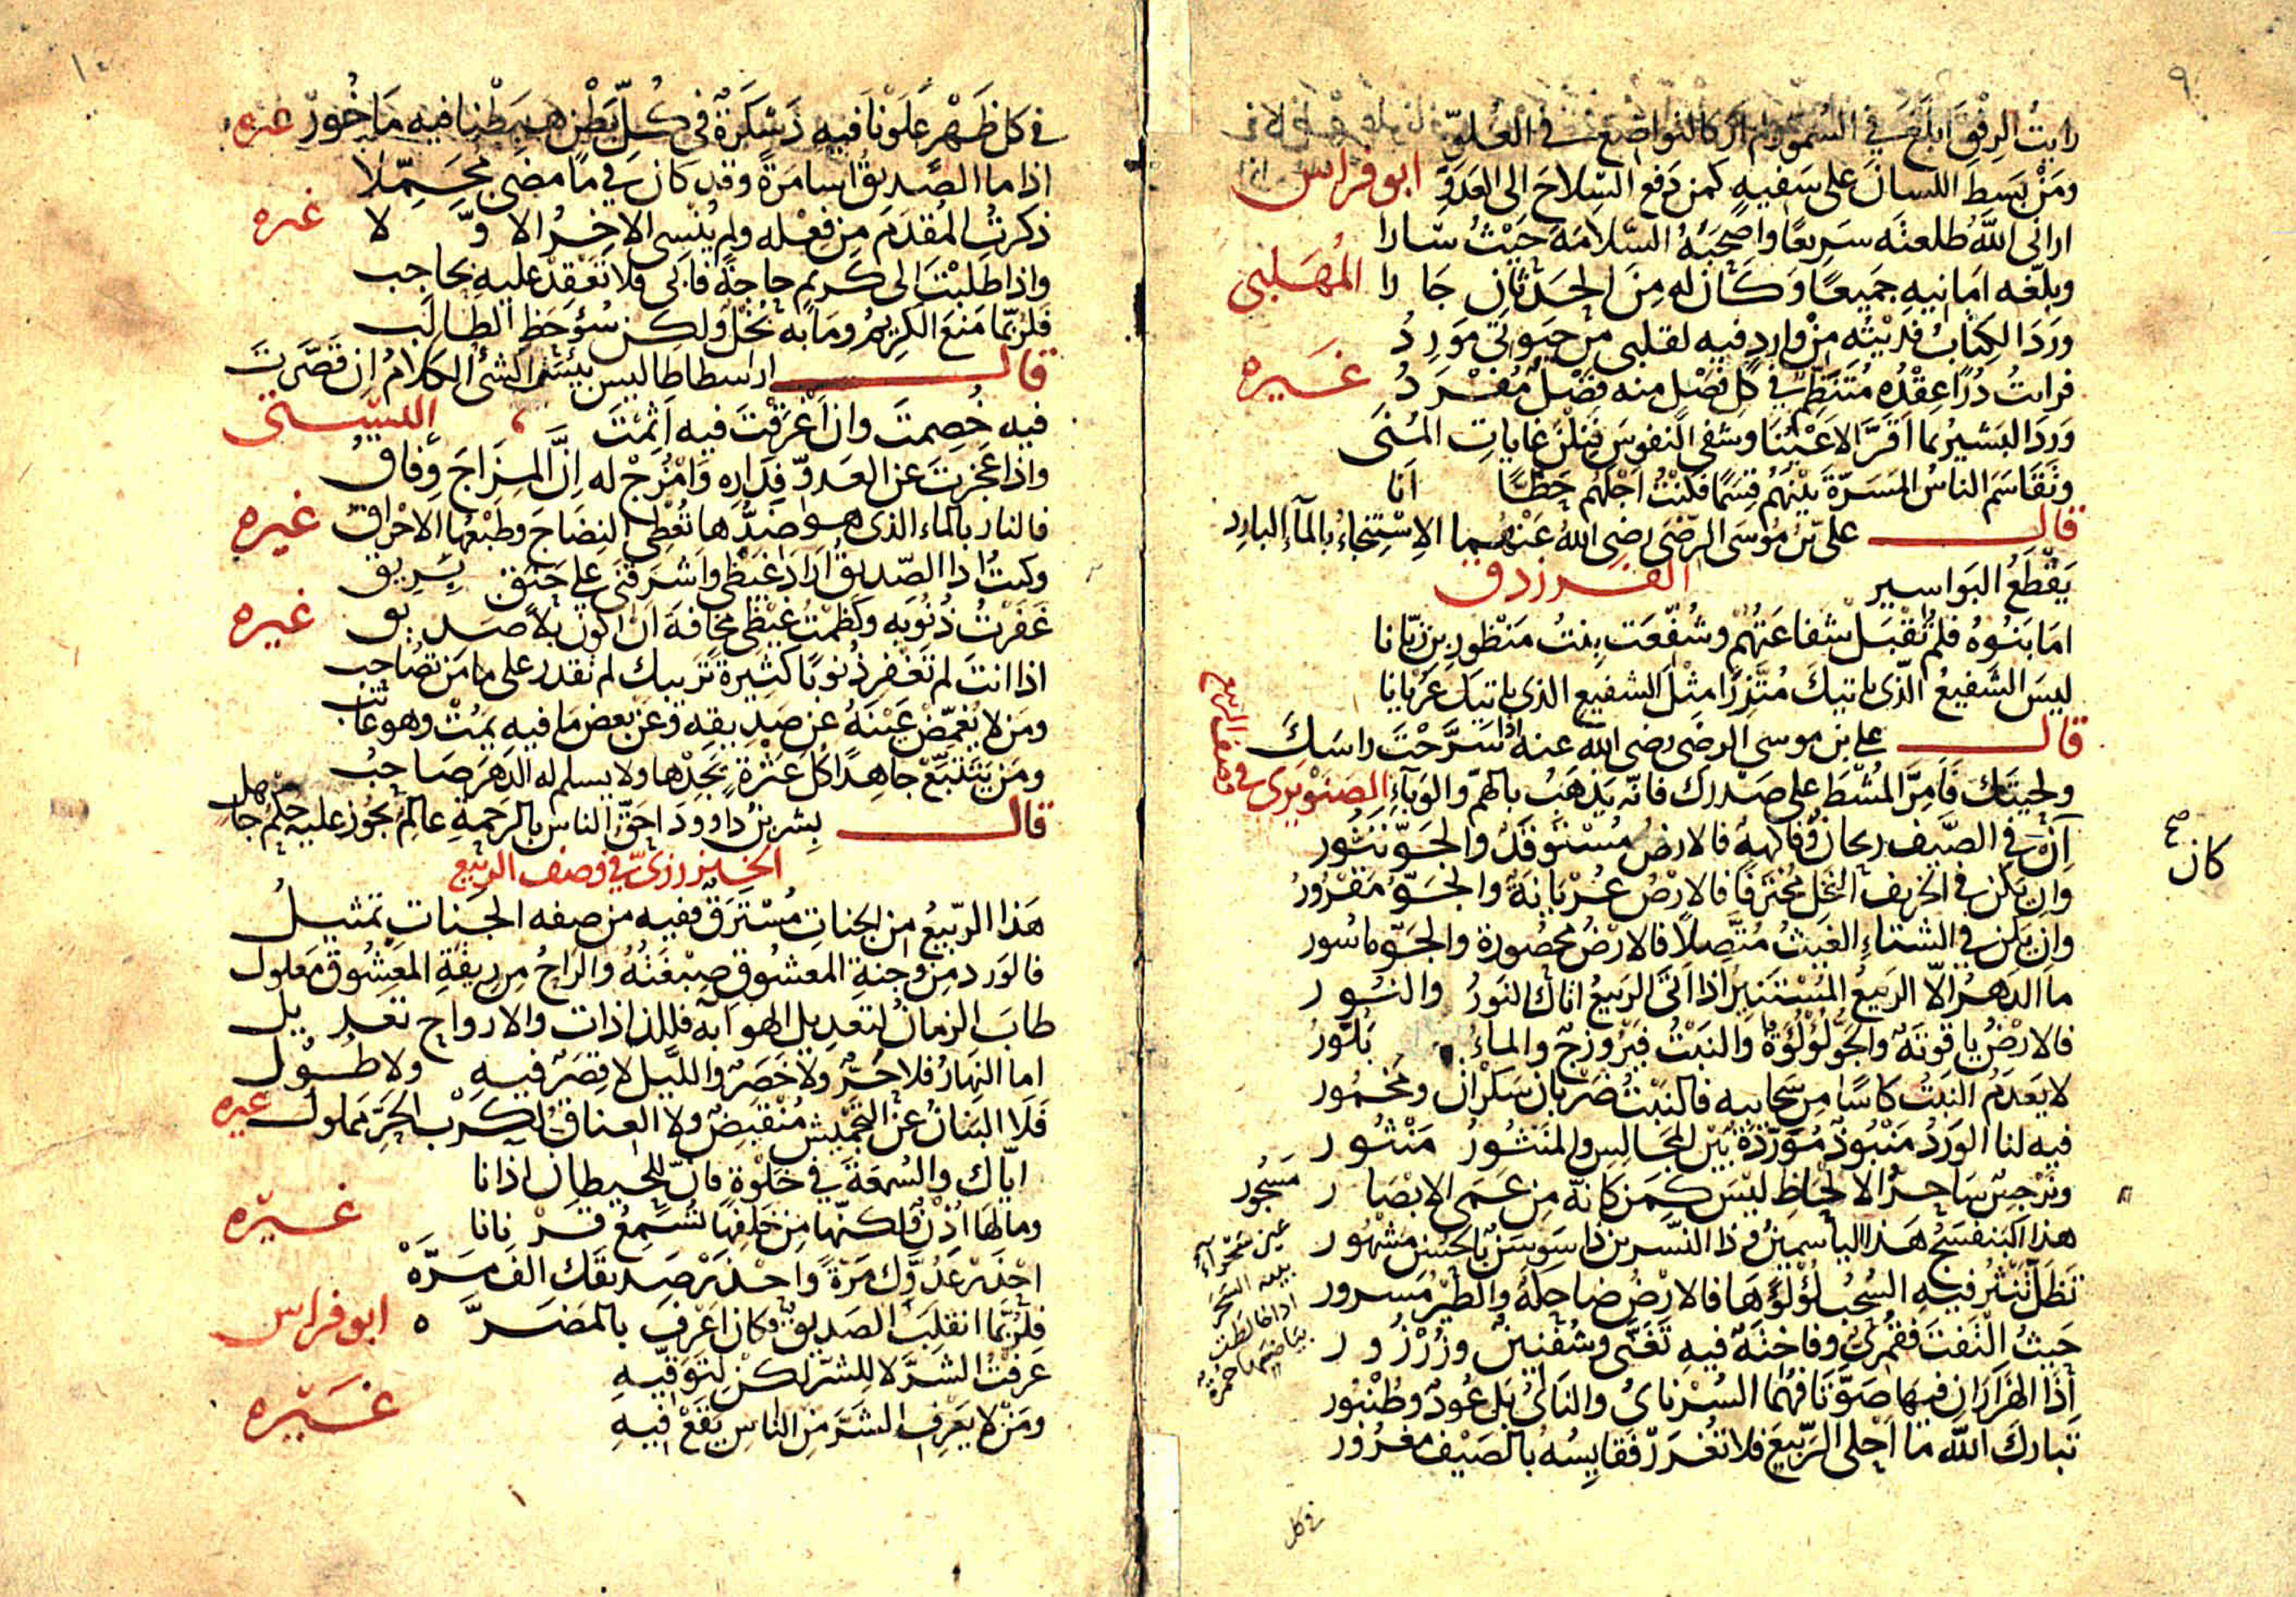 ٩
رايتُ الرِفقَ ابلَغَ في السُموّ ولم ار كالتواضع في العُلوّ
ومَنْ بَسَطَ اللسانَ على سَفيهٍ كمن دَفع السِّلاحَ الى العَدوّ ابو فراس
ارانى اللّٰهُ طلعتَه سَرِيعًا واَصْحَبَهُ السّلامَةَ حَيْثُ سَارا
وبلّغه امَانيهِ جَميعًا وَكَانَ له مِنَ الحَدَثَانِ جَا را المُهَلبى
ورَدَ الكِتابُ فَدَيْتُه مِنْ وارِدٍ فيه لقلبى من حَيوتى مَورِدُ
فرايتُ دُرًّا عِقْدُه مُتَنَظِّمٌ في كل فَصْلٍ منه فَضْلٌ مُفْرَدُ غَيره
وَرَدَ البَشيرُ بما اَقَرَّ الاَعْيُنَا وشفى النفوسَ فَنِلْنَ غاياتِ المُنَى
وتَقَاسَم الناسُ المَسَرّةَ بيْنَهُم قِسَمًا فكُنْتُ اَجَلَّهُم حَظًّا اَنَا
قال على بن مُوسَى الرّضَى رضى اللّٰه عَنْهُما الاِسْتِنجاءُ بالمآءِ البارِد
يَقْطَعُ البَواسير الفرزدق
امَا بَنُوهُ فلم تُقْبَلْ شفاعَتُهُمْ وشُفِّعَت بِنتُ مَنْظُورِ بن زبّانا
ليسَ الشَفيعُ الّذى ياتيكَ مُتَّزِرًا مثْلَ الشفيع الذى ياتيكَ عُرْيانا
قال على بن موسى الرضى رضى اللّٰه عنه اذا سَرَّحْتَ راسَكَ
ولحيَتكَ فَاَمِرَّ المُشْطَ على صَدْرك فانّه يَذهَبُ بالهمّ والوَبآءِ الصَنَوبَرى في
وصف الربيع
اِنْ في الصَّيف ريحانٌ وفاكهةٌ فالارضُ مُسْتَوقَدٌ والجَوّ تَنّور
كان صح
وان يكن في الخريف النخلُ مُخْتَرَفًا فالارْضُ عُرْيَانَةٌ والجَوّ مَقْرُورُ
وان يكن في الشتاءِ الغيثُ مُتّصلاً فالارْضُ محصُورة والجَوّ ماسُور
ما الدَهْرُ الّا الرَبيعُ المُسْتَنيرُ اذا اَتَى الرَبيعُ اتاكَ النَورُ والنُور
فالارْضُ ياقوتَةٌ والجَوّ لؤلؤةٌ والنَبْتُ فَيْرُوزجٌ والماءُ بَلّورُ
لا يَعدَمُ النَبْتُ كاسًا من سَحايبه فالنَبْتُ ضَرْبانِ سَكْرانٌ ومَخمُور
فيه لنا الوَردُ مَنْبُوذٌ مُورّدَةٌ بَيْنَ المجَالِسِ والمنثورُ مَنْثُور
ونَرْجسٌ سَاحرُ الالحاظ ليْسَ كَمَن كانّهُ مِن عَمَى الابْصَار مَسْجُور
هذا البَنفسَجُ هَذا الياسَمِينُ وذا النَّسرين ذا سَوسَنٌ بالحُسْنِ مشهُور
تَظَلّ تَنثُرُ فيهِ السُحْبُ لُؤلُؤَهَا فالارْضُ ضاحكةٌ والطّيْرُ مَسرور
حَيثُ الْتَفتَّ فقُمرىٌّ وفاخِتَةٌ فيهِ تَغَنَّى وشُفْنِينٌ وزُرْزُور
اذَا الهَزارَانِ فيهَا صَوّتَا فهُمَا السُرْناىُ والنَاىُ بَل عُودٌ وطُنْبُور
تَبارَكَ اللّٰه مَا اَحْلَى الرّبيعَ فلا تُغْرَرْ فَقَايِسُهُ بالصَّيْفِ مغرُور
في كل
١٠
في كل ظَهْرٍ عَلَوْنَا فيهِ دَسْكَرَةٌ في كُلّ بَطْنٍ هَبَطْنا فيهِ مَاخُور غيره
اذا ما الصَّديقُ اسا مَرّةً وقد كان في ما مَضى مُجْمِلا
ذكرتُ المُقدَّمَ من فِعْله ولم يُنْسِنى الاخِرُ الاوّلا غيره
واذا طَلَبْتَ الى كَريم حاجَةً فاَبَى فلا تَقْعُدْ عليهِ بحاجب
فلرُبّما مَنَعَ الكريمُ ومَا به بُخلٌ ولكن سُؤُ حَظِّ الطالَب
قال ارسطاطاليس بيئسَما الشئُ الكَلامُ اِن قَصَّرتَ
فيه خُصِمتَ وان اَغْرَقْتَ فيه اَثِمْتَ البُستى
واذا عَجَزتَ عن العَدوّ فدَارِهِ وَامْزُجْ له اِنَّ المِزَاجَ وِفاقُ
فالنار بالماء الذى هو ضدُّها تُعْطِى النِضَاجَ وطَبْعُها الاحْراقُ غيره
وكنتُ اذا الصّديقُ اَرادَ غَيْظى واَشرَقَنى على حَنَقٍ بِرِيق
غَفَرتُ ذُنُوبَه وكَظَمْتُ غَيْظى مخافةَ ان اكونَ بلا صَديق غيره
اذا انتَ لم تَغْفِرْ ذُنوبًا كثيرةً تَريبك لم تقدر على ما مَن تُصَاحِب
ومَن لا يُغمّضْ عَيْنَهُ عن صَديقه وعَن بعض مَا فيه يمُتْ وهو عاتب
ومَن يَتَتَبَّعْ جاهِدًا كل عَثْرةٍ يَجِدْها ولا يسلم له الدَهرَ صَاحِبُ
قال بِشر بنُ داوودَ احَقّ الناس بالرحمةِ عالِمٌ يجُوز عليه حكمُ جاهل
الخبزرزىّ في وصف الربيع
هَذا الرّبيعُ من الجناتِ مُسْتَرَقٌ ففيه من صفه الجَنات تمثيلُ
فالوَرد مِن وجنةِ المَعشوقِ صِبْغَتُهُ والرّاحُ من رِيقةِ المَعشُوق مَعلول
طابَ الزمانُ لتعديلِ الهوآ به فللذاذات والارواح تَعْديل
اما النهارُ فلا حَرٌّ ولا خَصَرٌ والليل لا قِصَرٌ فيهِ ولا طُول
فَلا البَنانُ عن التَجْميش مُنْقَبِضٌ ولا العناقُ لكَرْبِ الحَرّ مملول غيره
ايّاك والسُمعَةَ في خَلْوَةٍ فانّ للحيطان اذانا
وما لَها اُذْنٌ ولكنّها مِن خَلفِها تُسمِعُ قُرْنانا غَيره
احْذَرْ عَدُوَّك مَرّةً واحْذَرْ صَديقَك الفَ مَرَّهْ
فلرُبَّما انقلبَ الصَديقُ وكان اَعْرفَ بالمَضَرَّه ابو فراس
عَرفتُ الشرَّ لا للشرّ لكنْ لِتَوقّيهِ
ومَن لا يَعْرِفِ الشَرَّ مِنَ الناسِ يَقَعْ فيهِ غَيره